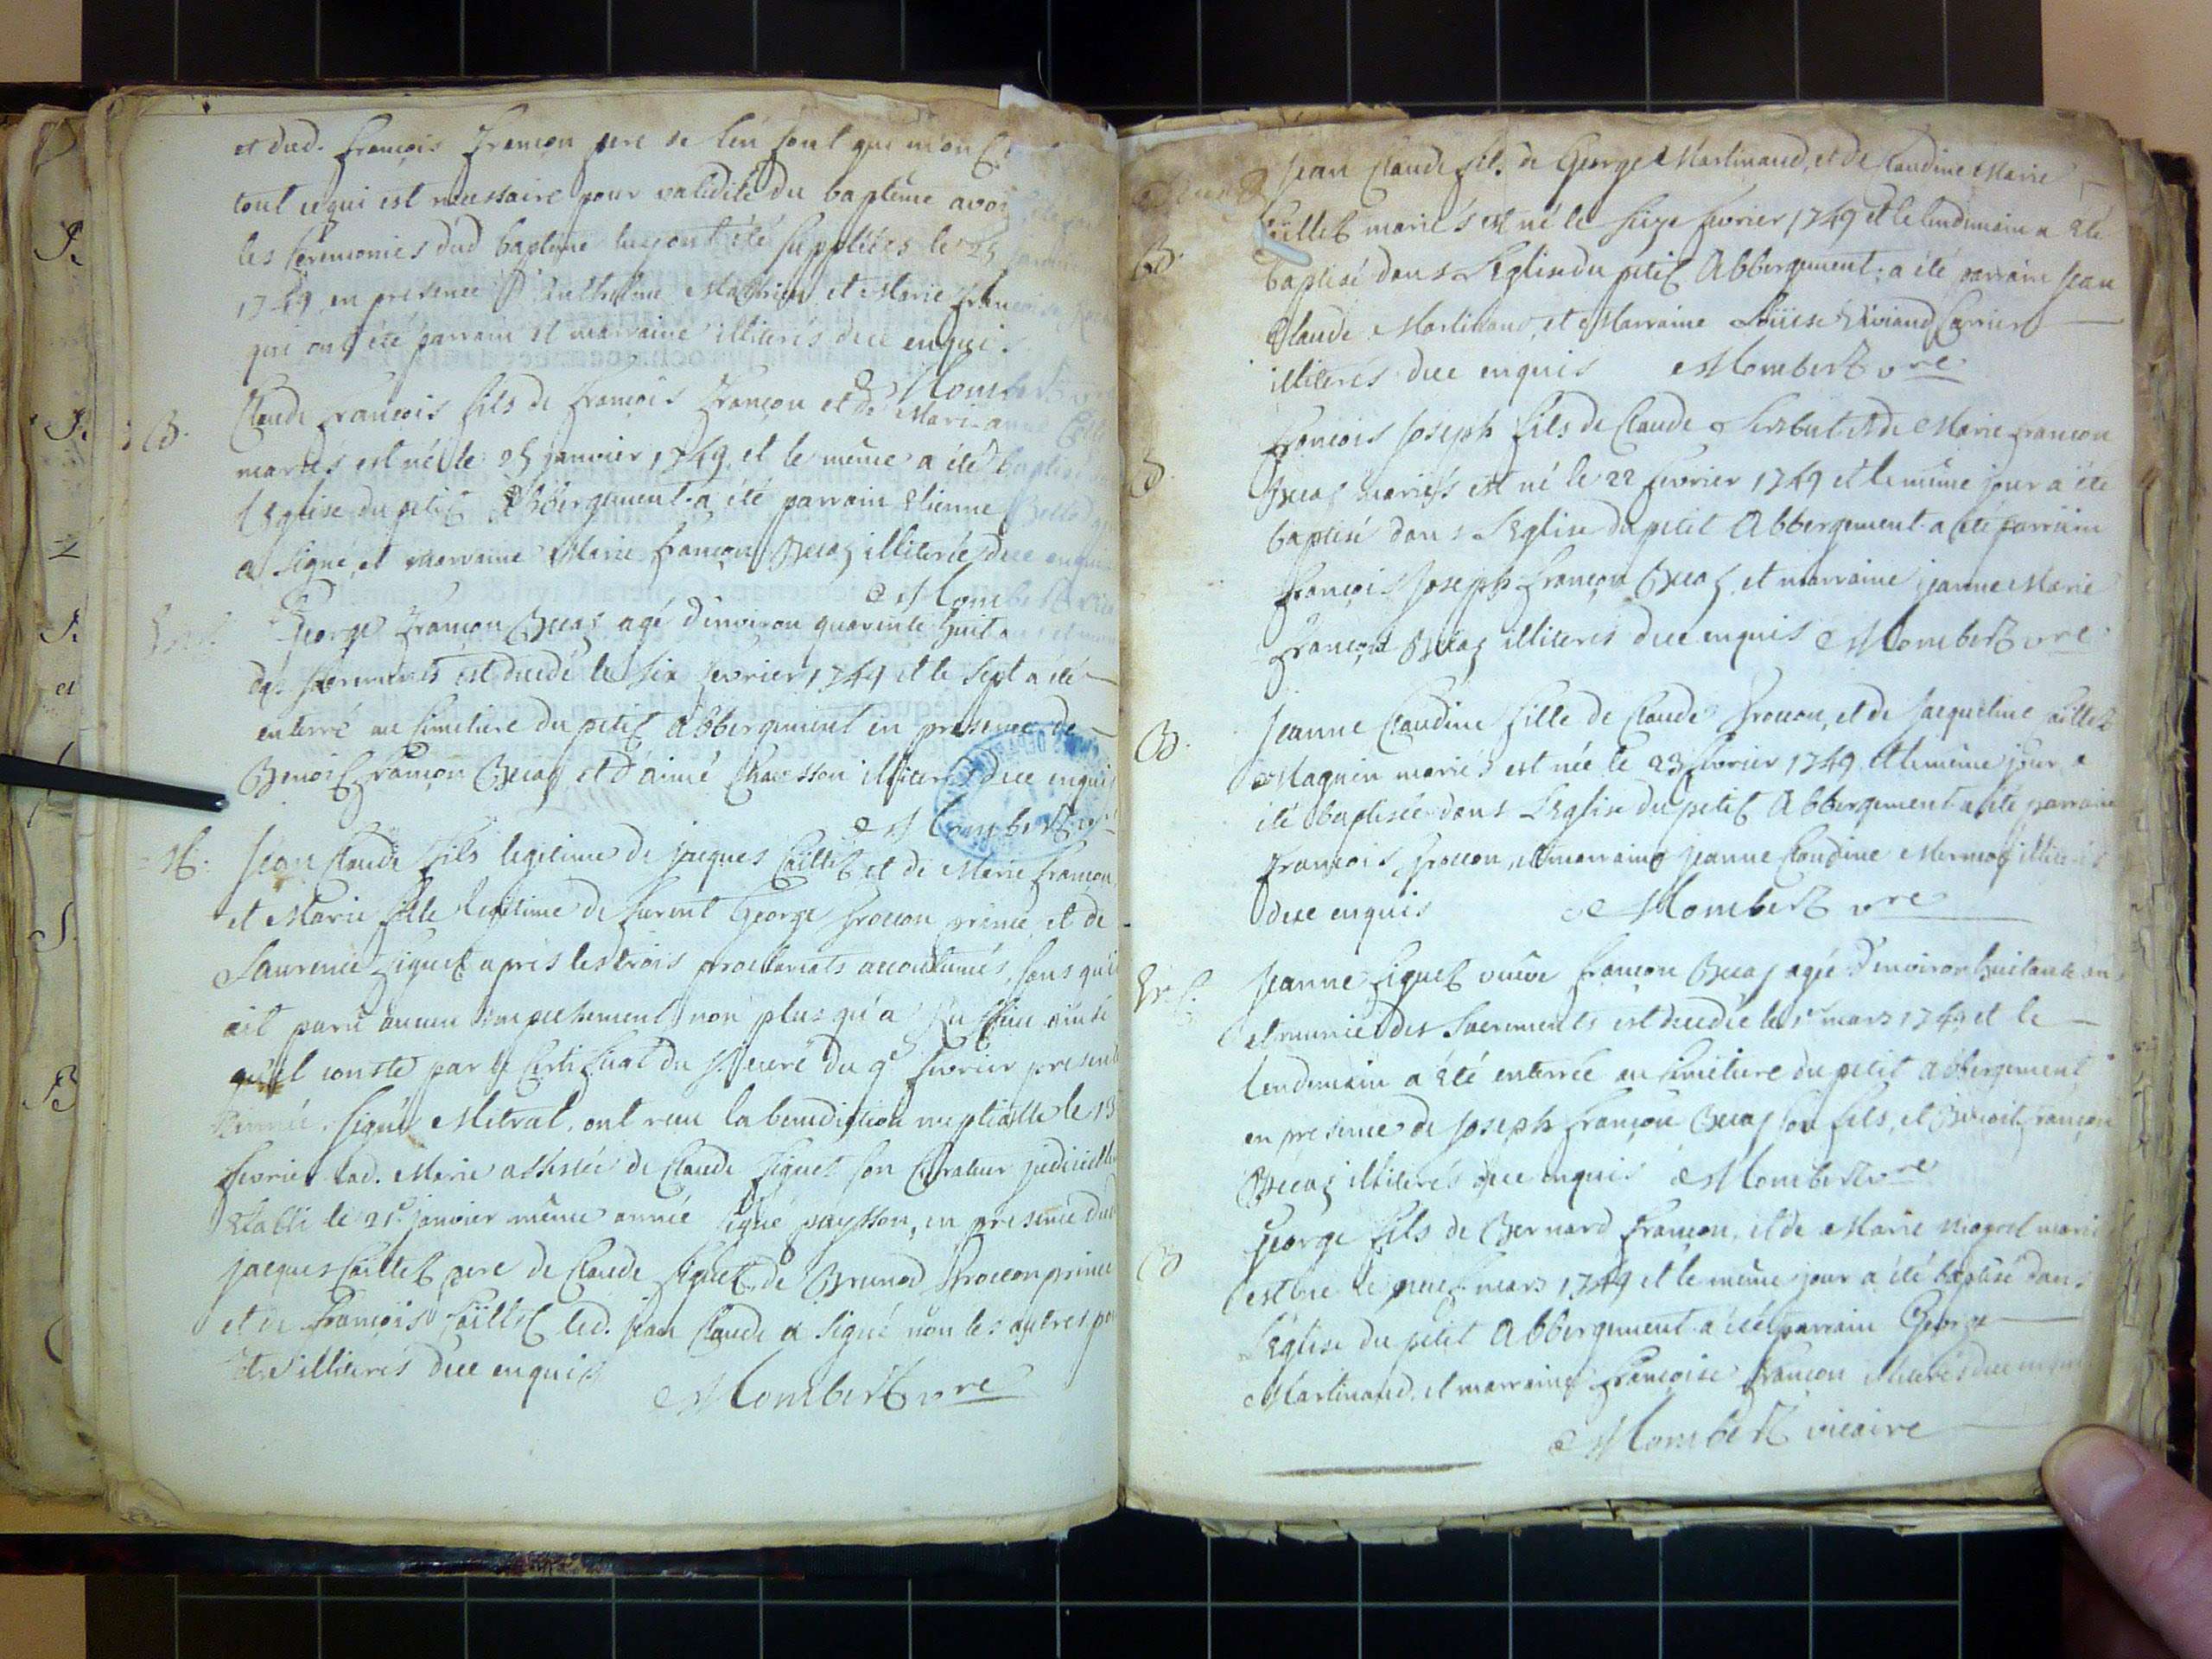 et dud. françois françon pere de
tout ce qui est necessaire pour validité du baptême
les Ceremonies dud baptême luy ont été supplées le 25
1749 en presence d'Anthelme et Marie
qui ont été parrain et marraine illiterés dece enquis.
Mombert
B.
Claude françois fils de françois françon et de Marianne
mariés est né le 25 janvier 1749 et le même a été baptisé
l'Eglise du petit Abbergement a été parrain Etienne
a signé, et marraine Marie françon Becaz illiterée dece enquis
Mombert
George françon Becaz agé d'environ quarente huit
des sacrements est decedé le six fevrier 1749 et le sept a été
enterré au simetiere du petit Abbergement en presence de
Benoit françon Becaz et d'aimé Chavosson illiterés dece enquis
Mombert
M.
Jean Claude fils legitime de jacques Caillet et de Marie françon
et Marie fille legitime de furent George froccon prince et de
Laurence figuet apres les trois proclamats accoutumés, sans qu'il
ait paru aucun empechement non plus qu'a ainsi
qu'il conste par le Certificat du Sr curé du 9e fevrier present
signé Metral, ont recu la benediction nuptialle le 13
fevrier lad. Marie assistée de Claude figuet son Curateur judicielle
Etabli le 21e janvier même année signé paysson, en presence dud
jacques Caillet pere de Claude figuet de Brunod froccon prince
et de françois Caillet led. jean Claude a signé non les autres
illiterés dece enquis
Mombert vre
B.
Jean Claude fils de George Martinaud, et de Claudine Marie
Caillet mariés est né le seize fevrier 1749 et le lendemain a eté
baptisé dans L'Eglise du petit Abbergement; a été parrain Jean
Claude Martinaud, et Marraine Loüise Viviand Carrier
illiterés dece enquis Mombert vre
B.
françois joseph fils de Claude et de Marie françon
Becaz mariés est né le 22 fevrier 1749 et le même jour a été
baptisé dans L'Eglise du petit Abbergement a été parrain
françois joseph françon Becaz et marraine jeanne Marie
françon Becaz illiterés dece enquis Mombert vre
B.
Jeanne Claudine fille de Claude froccon, et de jacqueline Caillet
Magnin mariés est née le 23 fevrier 1749 et le même jour a
été baptisée dans L'Eglise du petit Abbergement a été parrain
françois froccon, et marraine jeanne Claudine Mermet illiterés
dece enquis Mombert vre
Jeanne figuet veuve françon Becaz agée d'environ huitante ans
et munie des Sacrements est decedée le 1er mars 1749 et le
lendemain a été enterrée au simetiere du petit abbergement
en presence de joseph françon Becaz son fils, et Benoit françon
Becaz illiterés dece enquis Mombert vre
B
George fils de Bernard françon, et de Marie mariés
est né le mars 1749 et le même jour a été baptisé dans
L'Eglise du petit Abbergement a été parrain George
Martinaud, et marraine françoise françon illiterés dece enquis
Mombert vicaire